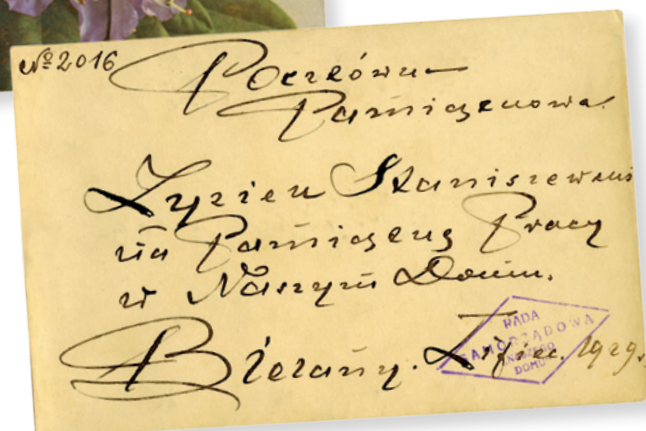 № 2016
Pocztówka
Pamiątkowa.
Staniszewski
na Pamiątkę Pracy
w Naszym Domu.
Bielany. Lipiec. 1929.
RADA
SAMORZĄDOWA
NASZEGO
DOMU